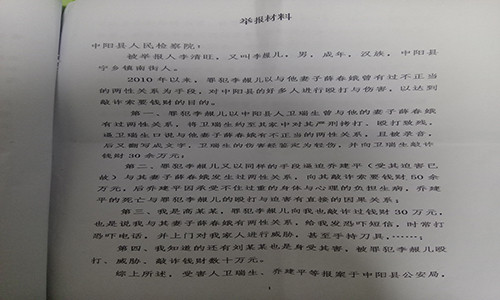 举报材料
中阳县人民检察院：
被举报人李清旺，又叫李赧儿。男，成年，汉族，中阳县
宁乡镇南街人。
2010 年以来，罪犯李赧儿以与他妻子薛春娥曾有过不正当
的两性关系为手段，对中阳县的好多人进行殴打与伤害，以达到
敲诈索要钱财的目的。
第一、罪犯李赧儿以中阳县人卫瑞生曾与他的妻子薛春娥
有过两性关系，将卫瑞生约至其家中对其严刑拷打、殴打致残，
逼卫瑞生口说与他妻子薛春娥有不正当的两性关系，且被录音，
后又翻写成文字，卫瑞生的伤害经鉴定为轻伤，并向卫瑞生敲诈
钱财 30 余万元；
第二、罪犯李赧儿又以同样的手段逼迫乔建平（受其迫害已
故）与其妻子薛春娥发生过两性关系，向其敲诈索要钱财 50 余
万元，后乔建平因承受不住过重的身体与心理的负担生病，乔建
平的死亡与罪犯李赧儿的殴打与迫害有直接的因果关系；
第三、我是高某某，罪犯李赧儿向我也敲诈过钱财 30 万元，
也是说我与其妻子薛春娥有两性关系，给我发恐吓短信，时常打
恐吓电话，并上门对我家人进行威胁，甚至手持刀具，……；
第四、我知道的还有刘某某也是身受其害，被罪犯李赧儿殴
打、威胁、敲诈钱财数十万元。
综上所述，受害人卫瑞生、乔建平等报案于中阳县公安局，
1